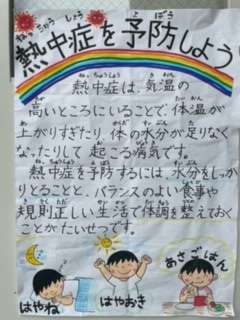 熱中症を予防しよう
熱中症は、気温の
高いところにいることで、体温が
上がりすぎたり、体の水分が足りなく
なったりして起こる病気です。
熱中症を予防するには、水分をしっ
かりとることと、バランスのよい食事や
規則正しい生活で体調を整えておく
ことがたいせつです。
はやね
はやおき
あさごはん